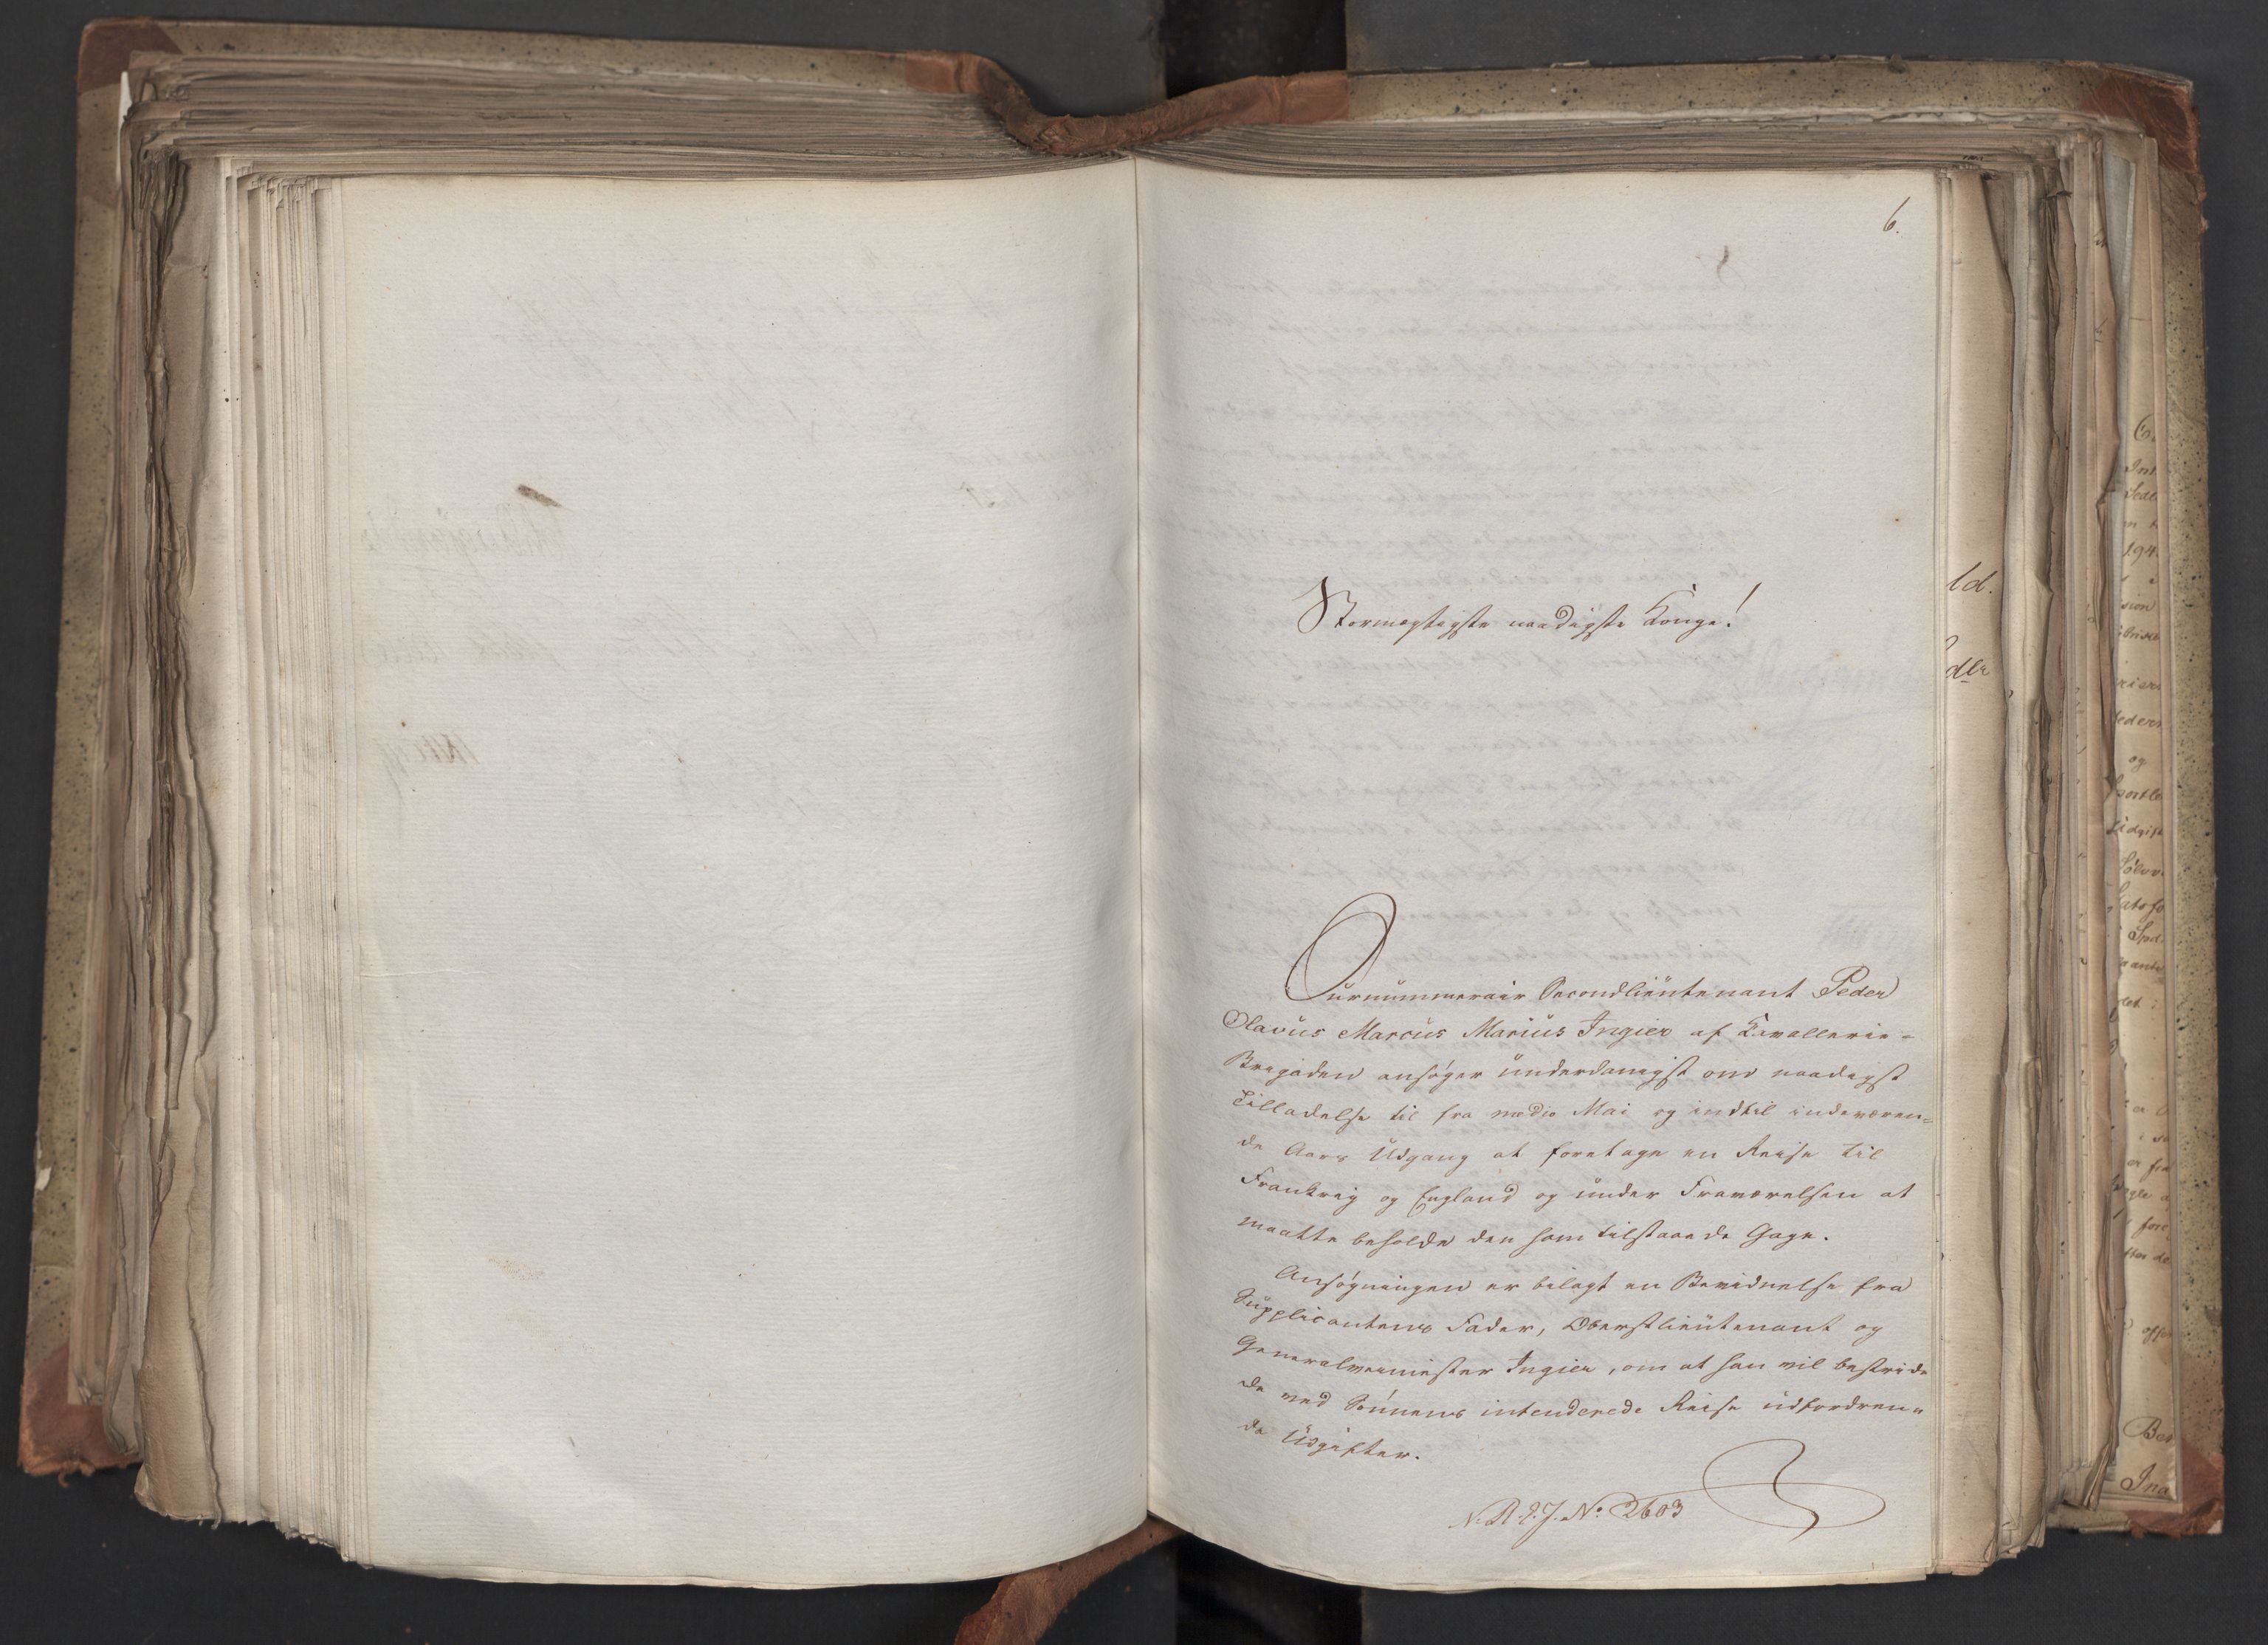 6.
Stormægtigste naadigste Konge!
Ournummerair Secondlieutenant Peder
Olavus Marcus Marius Ingier af Kavallerie-
Brigaden ansøger underdanigst om naadigst
Tilladelse til fra medio Mai og indtil indeværen-
de Aars Udgang at foretage en Reise til
Frankrig og England og under Fraværelsen at
maatte beholde den ham tilstaaede Gage.
Ansøgningen er bilagt en Bevidnelse fra
Supplicantens Fader, Oberstlieutenant og
Generalveimester Ingier, om at han vil bestride
de med Sønnens intenderede Reise udfordren-
de Udgifter.
N. R. J. No 2603
ld.
der
194
sion
og
Ina